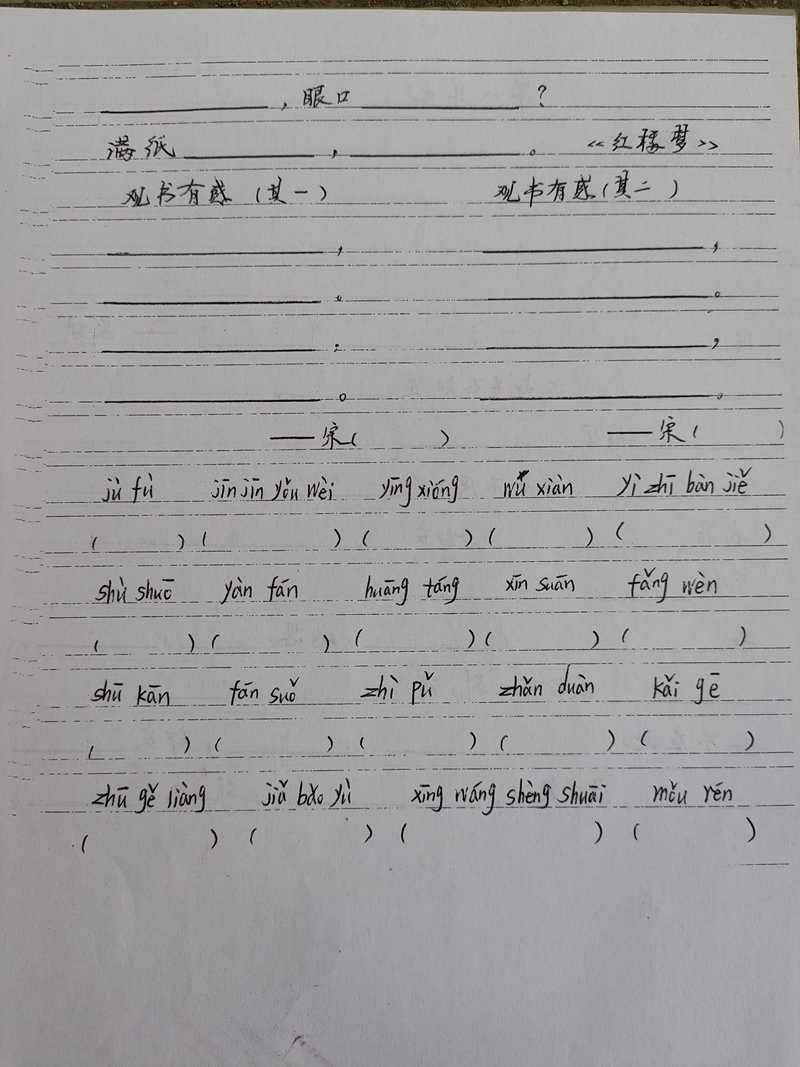 ，眼口？
满纸，。《红楼梦》
观书有感（其一） 观书有感（其二）
， ，
。 。
； ，
。 。
——宋（ ） ——宋（ ）
jù fù jīn jīn yǒu wèi yīng xióng wǔ xiàn yì zhī bàn jiě
（ ）（ ）（ ）（ ）（ ）
shù shuō yàn fán huāng táng xīn suān fǎng wèn
（ ）（ ）（ ）（ ）（ ）
shū kān fán suǒ zhì pǔ zhǎn duàn kǎi gē
（ ）（ ）（ ）（ ）（ ）
zhū gě liàng jiǎ bǎo yù xīng wáng shèng shuāi mǒu rén
（ ）（ ）（ ）（ ）